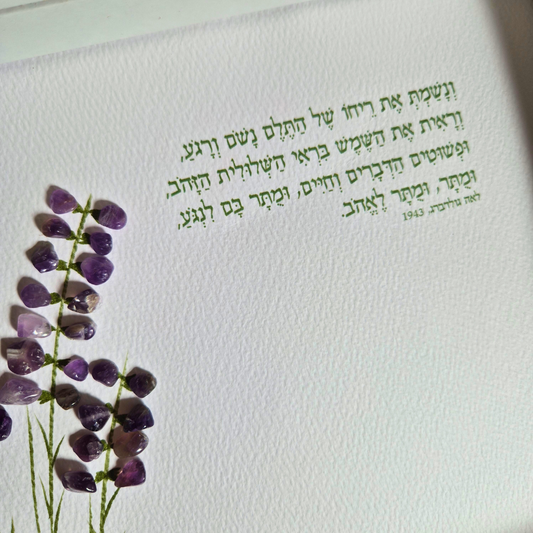 וְנָשַׁמְתְּ אֶת רֵיחוֹ שֶׁל הַתֶּלֶם נָשֹׁם וְרָגֹעַ,
וְרָאִית אֶת הַשֶּׁמֶשׁ בִּרְאִי הַשְּׁלוּלִית הַזָּהֹב,
וּפְשׁוּטִים הַדְּבָרִים וְחַיִּים, וּמֻתָּר בָּם לִנְגֹּעַ,
וּמֻתָּר, וּמֻתָּר לֶאֱהֹב.
לאה גולדברג, 1943